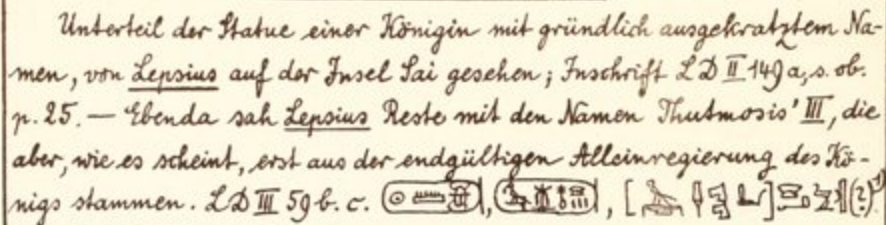 Unterteil der Statue einer Königin mit gründlich ausgekratztem Na-
men, von Lepsius auf der Insel Sai gesehen; Inschrift LD II 149 a, s. ob.
p. 25. — Ebenda sah Lepsius Reste mit den Namen Thutmosis' III, die
aber, wie es scheint, erst aus der endgültigen Alleinregierung des Kö-
nigs stammen. LD III 59 b. c.